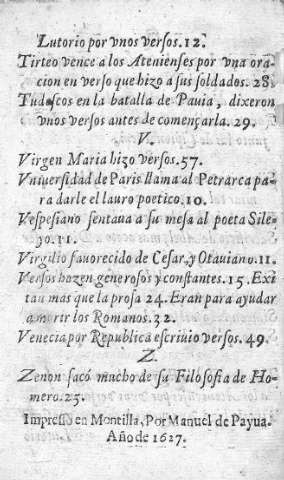 Lutorio por vnos versos.12.
Tirteo vence a los Atenienses por vna ora
cion en verso que hizo a sus soldados. 28
Tudescos en la batalla de Pauia, dixeron
vnos versos antes de començarla. 29.
V.
Virgen Maria hizo versos. 57.
Vniuersidad de Paris llama al Petrarca pa
ra darle el lauro poetico. 10.
Vespesiano sentaua a su mesa al poeta Sile
yo. 11.
Virgilio fauorecido de Cesar, y Otauiano. 11.
Versos hazen generosos y constantes. 15. Exi
tan mas que la prosa 24. Eran para ayudar
a morir los Romanos. 32.
Venecia por Republica escriuio versos. 49.
Z.
Zenon sacó mucho de su Filosofia de Ho-
mero. 25.
Impresso en Montilla, Por Manuel de Payua.
Año de 1627.